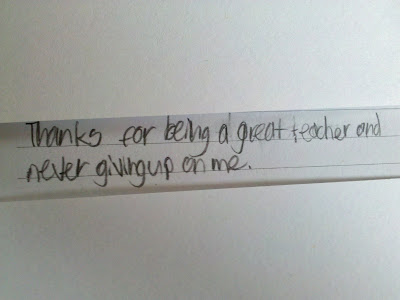 Thanks for being a great teacher and
never giving up on me.